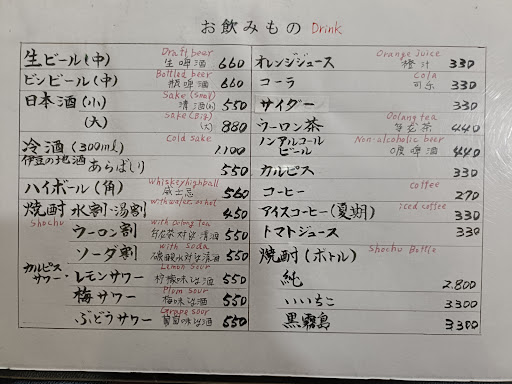 お飲みもの Drink
Draft beer
生ビール(中) 生啤酒 660
Bottled beer
ビンビール(中) 瓶啤酒 660
Sake (Small)
日本酒(小) 清酒(小) 550
Sake (Big)
(大) (大) 880
Cold sake
冷酒(300ml) 1.100
伊豆の地酒 あらばしり 550
Whiskey highball
ハイボール(角) 威士忌 560
with water, or hot
焼酎 水割・湯割 450
Shochu with Oolong Tea
ウーロン割 550
with Soda
ソーダ割 550
Lemon sour
カルピスサワー・レモンサワー 柠檬味 550
Plum sour
梅サワー 梅味 550
Grape sour
ぶどうサワー 葡萄 550
Orange juice
オレンジジュース 橙汁 330
Cola
コーラ 可乐 330
サイダー 330
Oolang tea
ウーロン茶 440
Non-alcoholic beer
ノンアルコールビール 0度啤酒 440
カルピス 330
coffee
コーヒー 270
iced coffee
アイスコーヒー(夏期) 330
トマトジュース 330
Shochu Bottle
焼酎(ボトル)
純 2.800
いいちこ 3300
黒霧島 3300